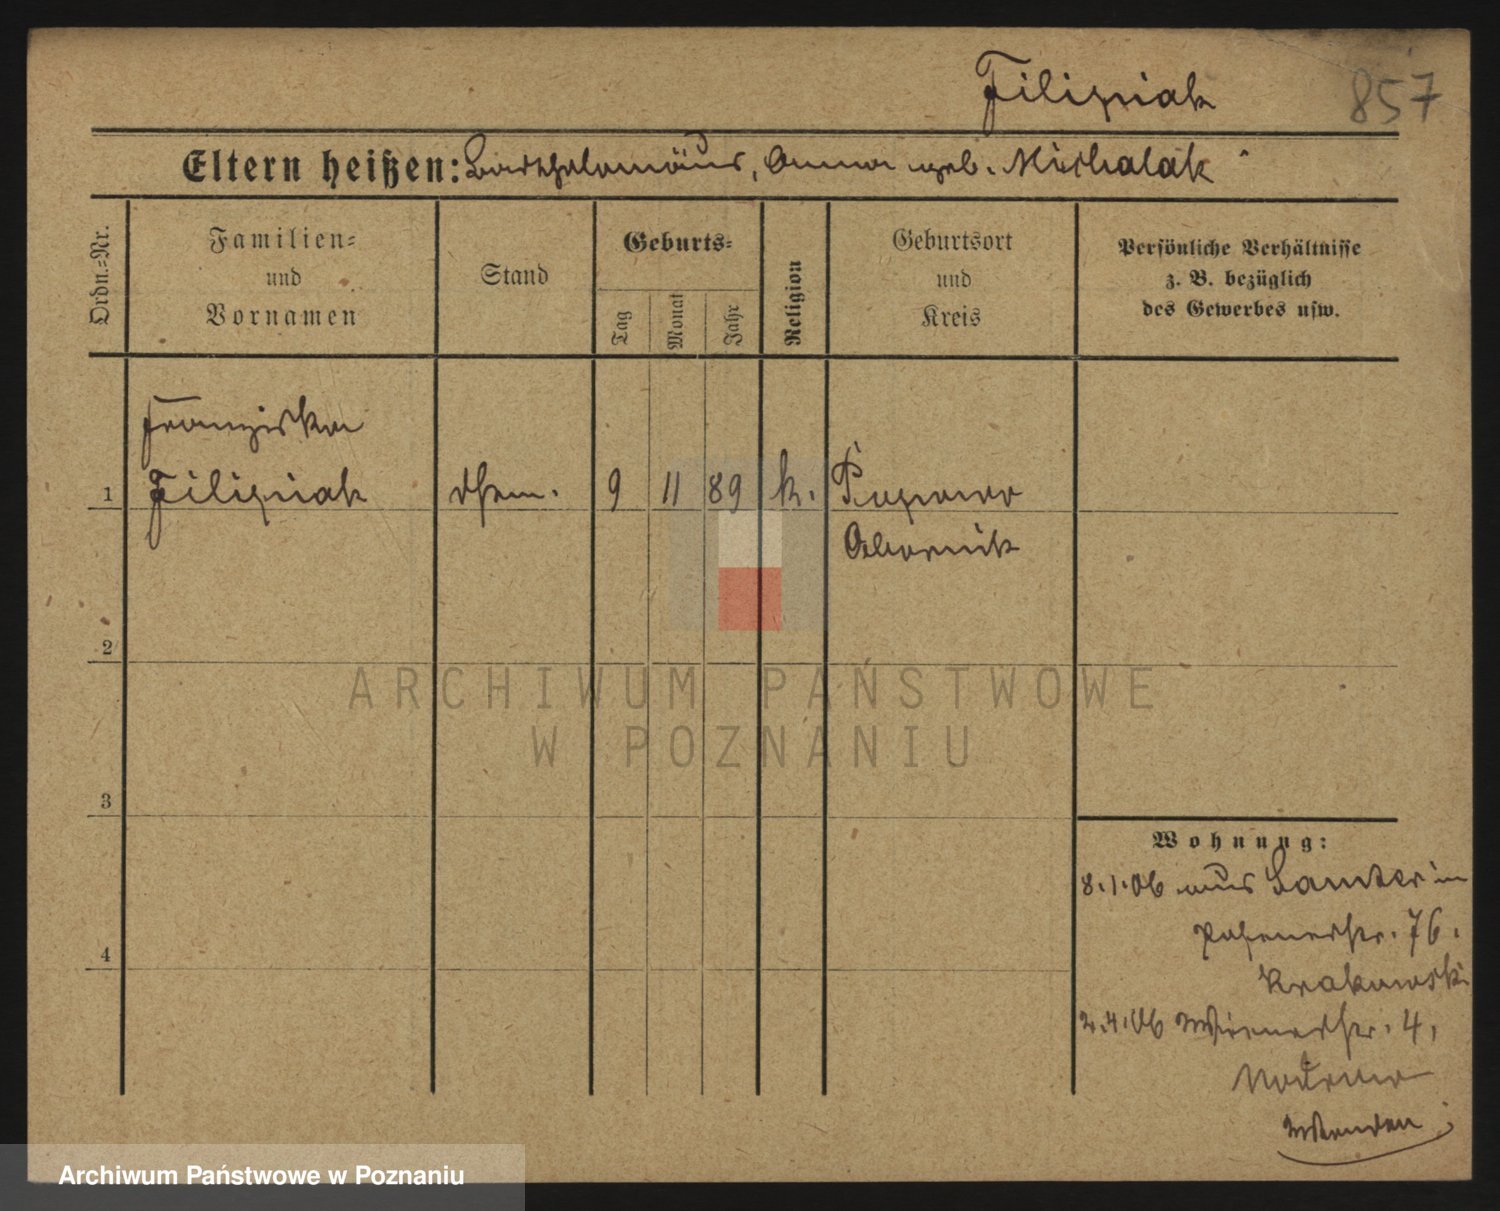 Filipiak 857
Eltern heißen: Bartholomäus, Anna geb. Michalak
Ordn.-Nr.
Familien-
und
Vornamen
Stand
Geburts-
Tag
Monat
Jahr
Religion
Geburtsort
und
Kreis
Persönliche Verhältnisse
z. B. bezüglich
des Gewerbes usw.
Franziska
1 Filipiak 9 11 89 k.
Obornik
2
ARCHIWUM PAŃSTWOWE
W POZNANIU
3
Wohnung:
8.1.06 aus Samter in
Posenerstr. 76.
Krakowski
4
2.4.06 Wienerstr. 4.
Wenden
Archiwum Państwowe w Poznaniu